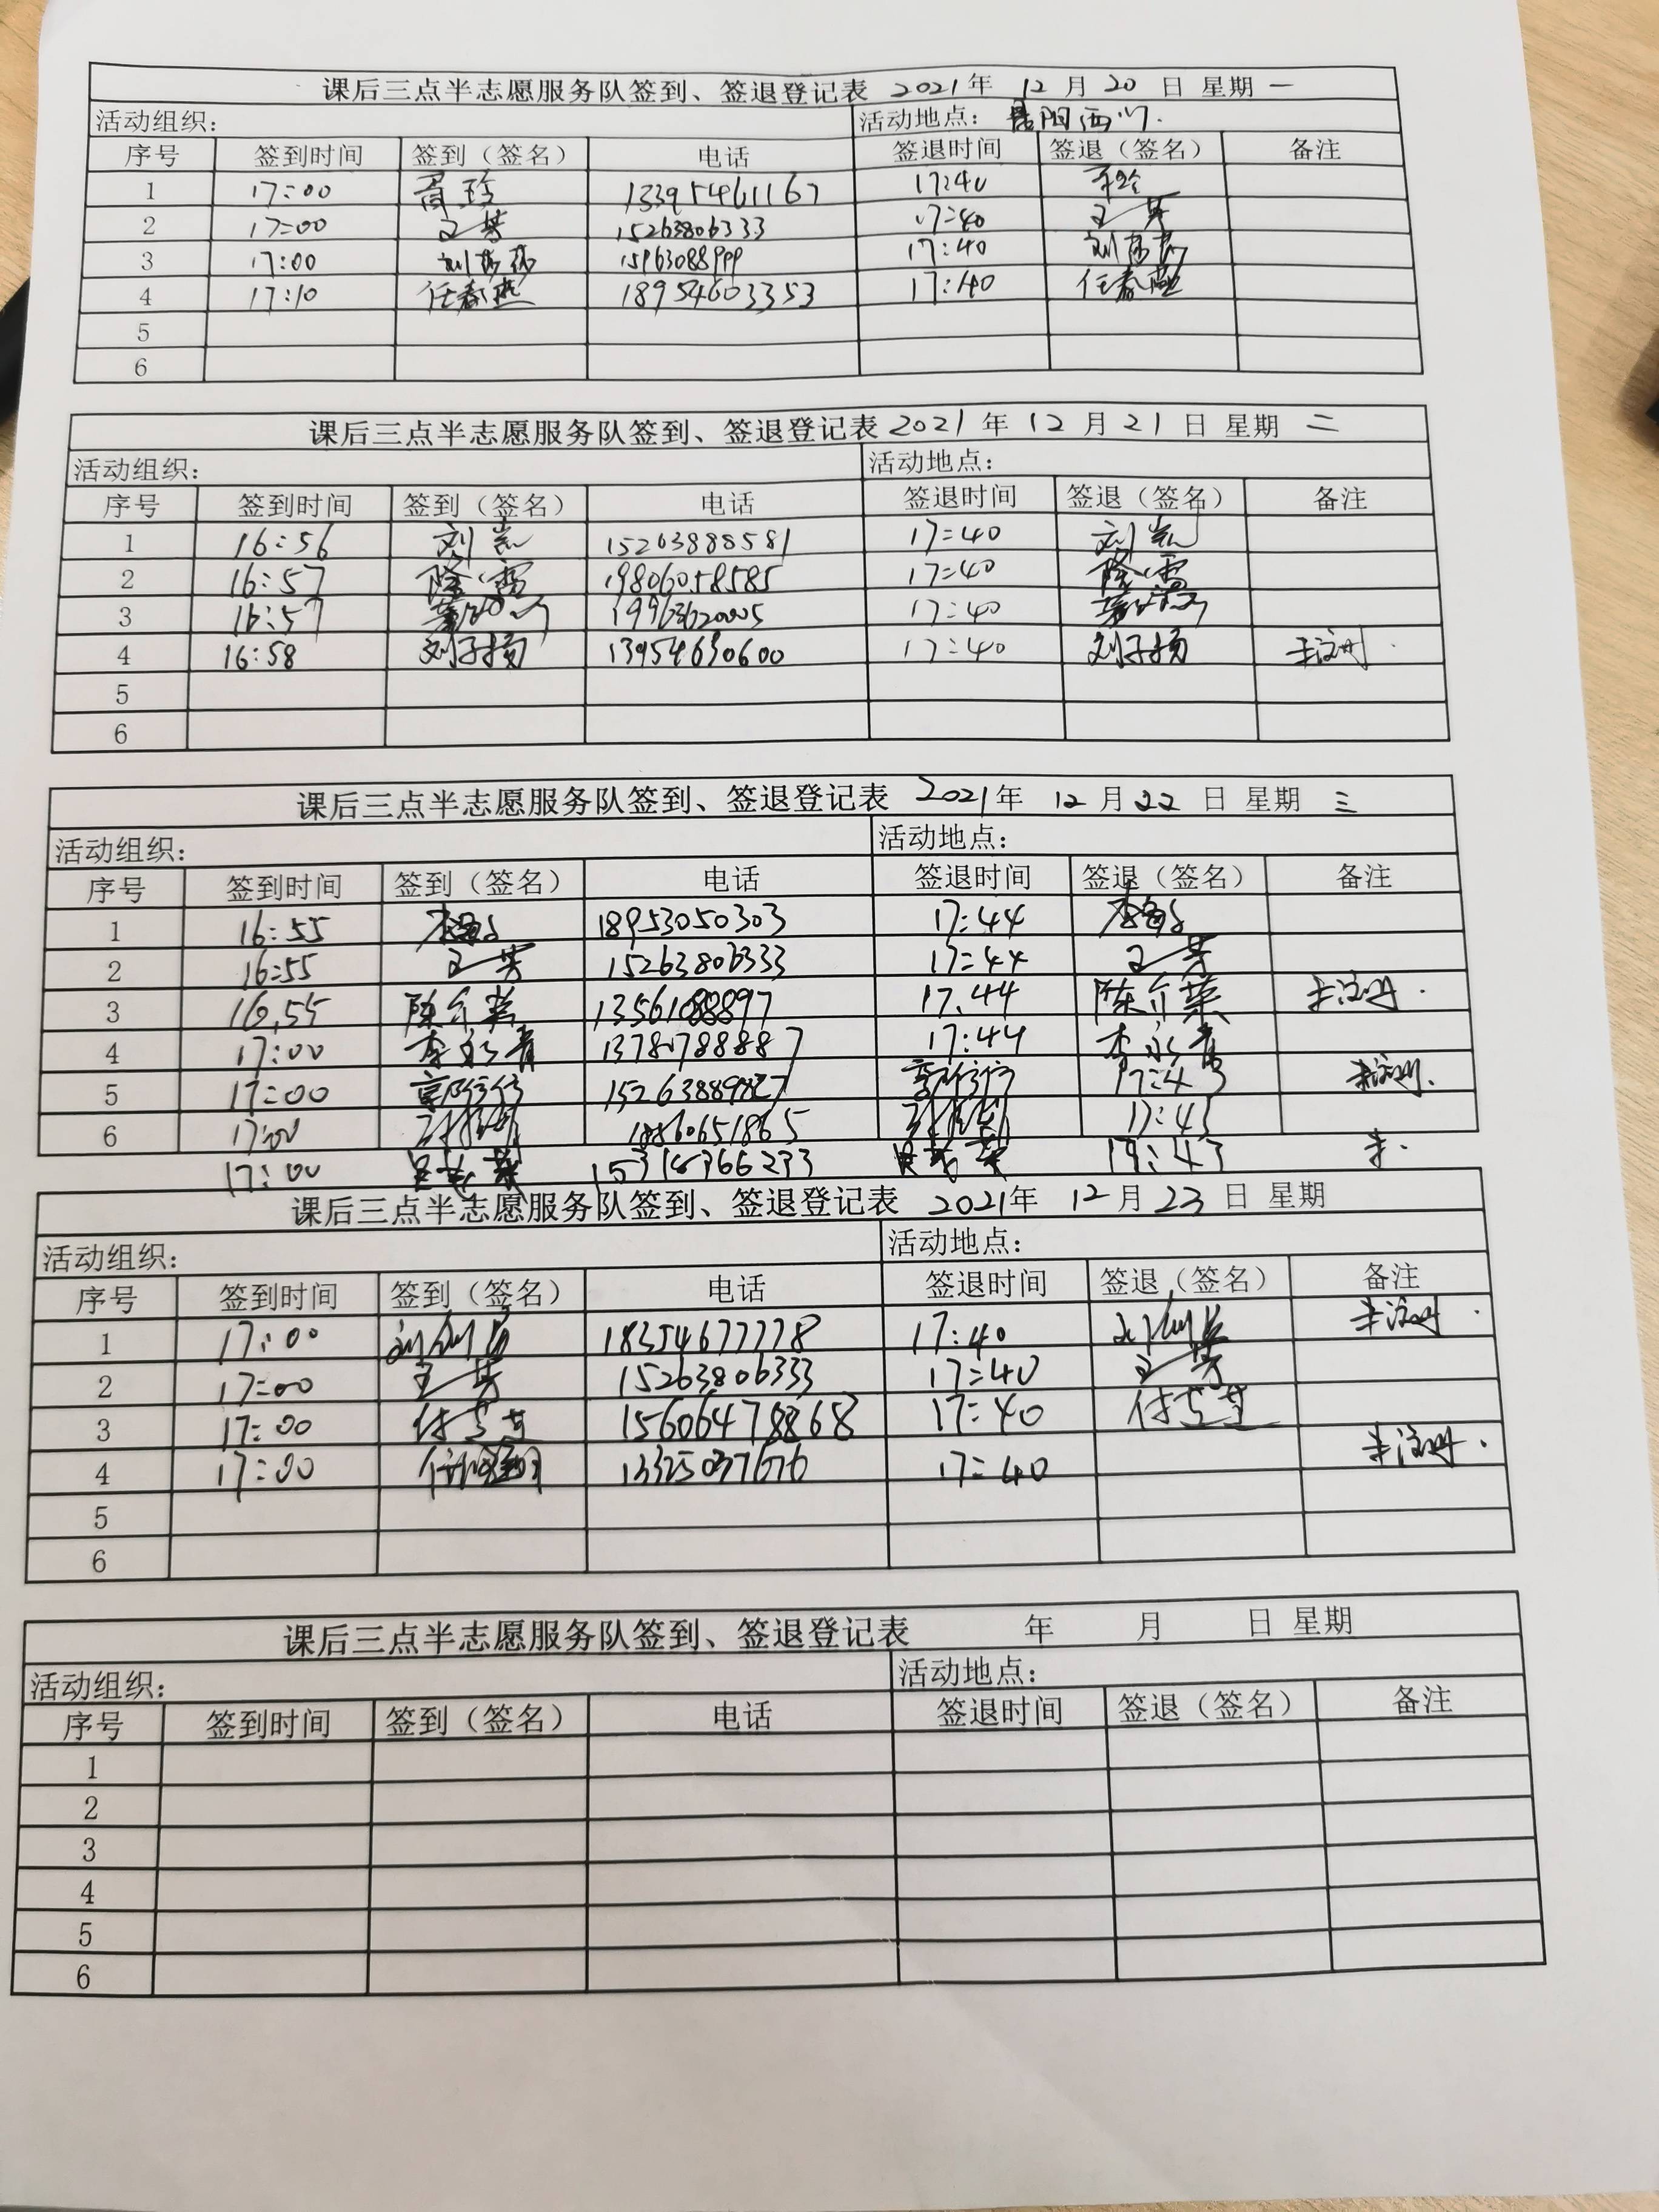 课后三点半志愿服务队签到、签退登记表 2021年 12月20日 星期一
活动组织： 活动地点：阳西门.
序号 签到时间 签到（签名） 电话 签退时间 签退（签名） 备注
1 17:00 13395461167 17:40
2 17:00 王芳 15263806333 17:40 王芳
3 17:00 刘莎莎 15963088999 17:40 刘莎莎
4 17:10 任春燕 18954603353 17:40 任春燕
5
6
课后三点半志愿服务队签到、签退登记表 2021年 12月21日 星期 二
活动组织： 活动地点：
序号 签到时间 签到（签名） 电话 签退时间 签退（签名） 备注
1 16:56 刘岚 15263888581 17:40 刘岚
2 16:57 隆雪 19806058585 17:40 隆雪
3 16:57 17:40
4 16:58 刘子扬 13954630600 17:40 刘子扬 未注册.
5
6
课后三点半志愿服务队签到、签退登记表 2021年 12月22日 星期 三
活动组织： 活动地点：
序号 签到时间 签到（签名） 电话 签退时间 签退（签名） 备注
1 16:55 18953050303 17:44
2 16:55 王芳 15263806333 17:44 王芳
3 16:55 陈介荣 13561088897 17.44 陈介荣 未注册.
4 17:00 李永青 13781788887 17:44 李永青
5 17:00 17:43 未注册.
6 17:00 17:43
17:00 15314366233 17:43 未.
课后三点半志愿服务队签到、签退登记表 2021年 12月23日 星期
活动组织： 活动地点：
序号 签到时间 签到（签名） 电话 签退时间 签退（签名） 备注
1 17:00 18354677778 17:40 未注册.
2 17:00 王芳 15263806333 17:40 王芳
3 17:00 15606478868 17:40
4 17:00 13325037676 17:40 未注册.
5
6
课后三点半志愿服务队签到、签退登记表 年 月 日 星期
活动组织： 活动地点：
序号 签到时间 签到（签名） 电话 签退时间 签退（签名） 备注
1
2
3
4
5
6